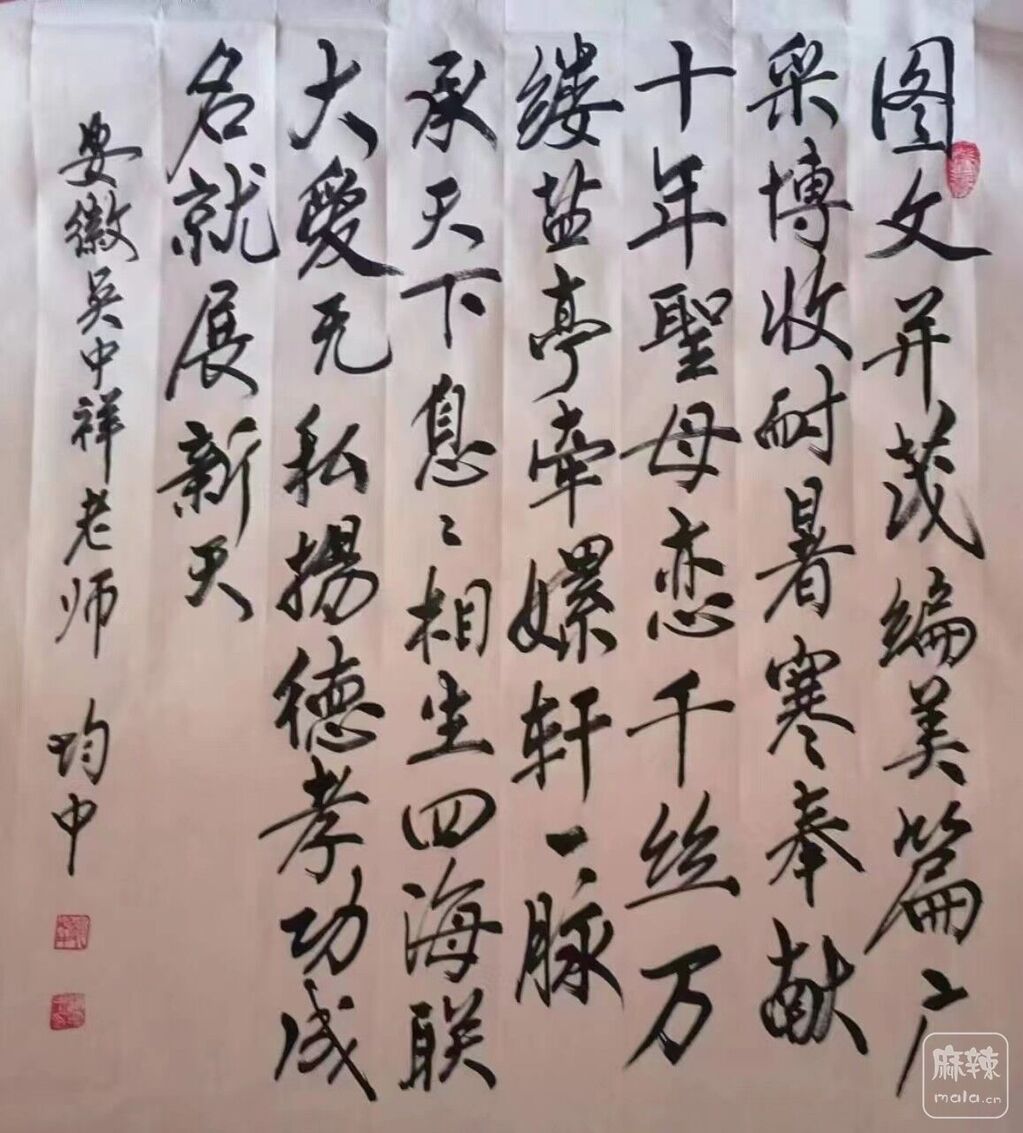 图文并茂编美篇广
采博收耐暑寒奉献
十年聖母恋千丝万
缕盐亭牵嫘轩一脉
承天下息〻相生四海联
大爱无私扬德孝功成
名就展新天
安徽吴中祥老师 均中
麻辣
mala.cn